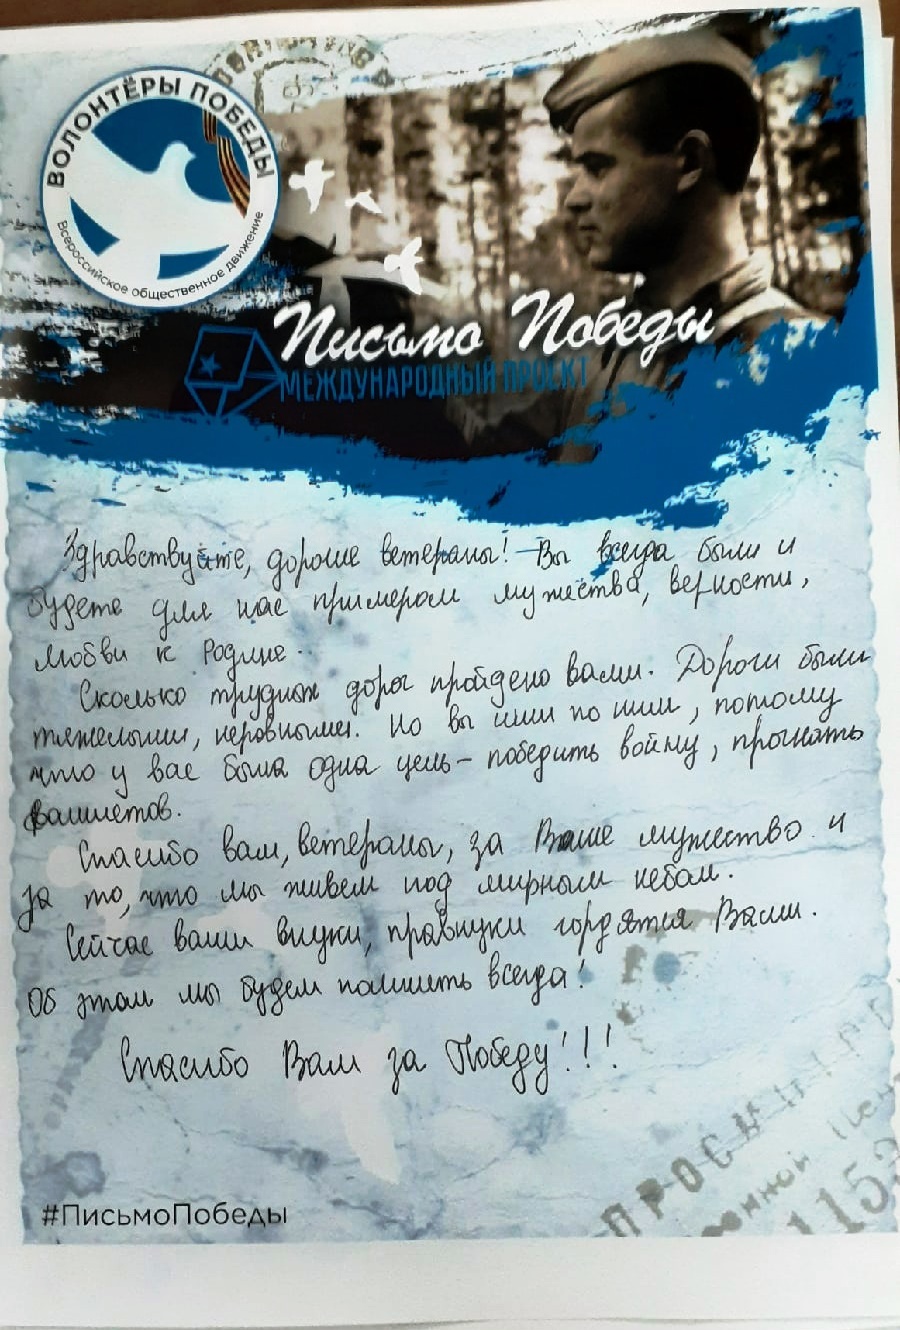 ВОЛОНТЁРЫ ПОБЕДЫ
Всероссийское общественное движение
Письмо Победы
МЕЖДУНАРОДНЫЙ ПРОЕКТ
Здравствуйте, дорогие ветераны! Вы всегда были и
будете для нас примером мужества, верности,
любви к Родине.
Сколько трудных дорог пройдено вами. Дороги были
тяжелыми, неровными. Но вы шли по ним, потому
что у вас была одна цель - победить войну, прогнать
фашистов.
Спасибо вам, ветераны, за Ваше мужество и
за то, что мы живем под мирным небом.
Сейчас ваши внуки, правнуки гордятся Вами.
Об этом мы будем помнить всегда!
Спасибо Вам за Победу!!!
#ПисьмоПобеды